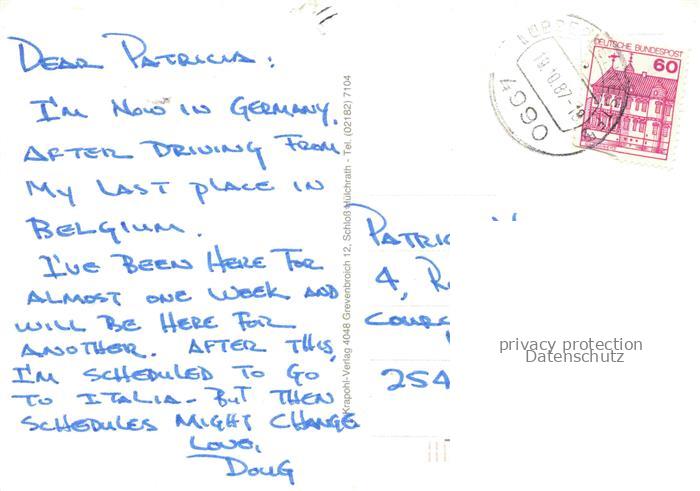 DEAR PATRICIA:
I'M NOW IN GERMANY,
AFTER DRIVING FROM
MY LAST PLACE IN
BELGIUM.
I'VE BEEN HERE FOR
ALMOST ONE WEEK AND
WILL BE HERE FOR
ANOTHER. AFTER THIS,
I'M SCHEDULED TO GO
TO ITALIA - BUT THEN
SCHEDULES MIGHT CHANGE
LOVE,
DOUG
Krapohl-Verlag 4048 Grevenbroich 12, Schloß Hülchrath - Tel. (02182) 7104
DEUTSCHE BUNDESPOST
60
19.10.87-19
4990
PATRIC
4, R
COURC
254
privacy protection
Datenschutz